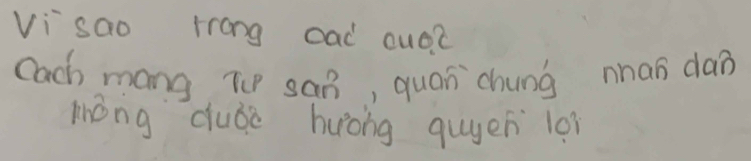 Vì sao trong các cuộc
Cách mạng Tư sản, quần chúng nhân dân
không được hưởng quyền lợi